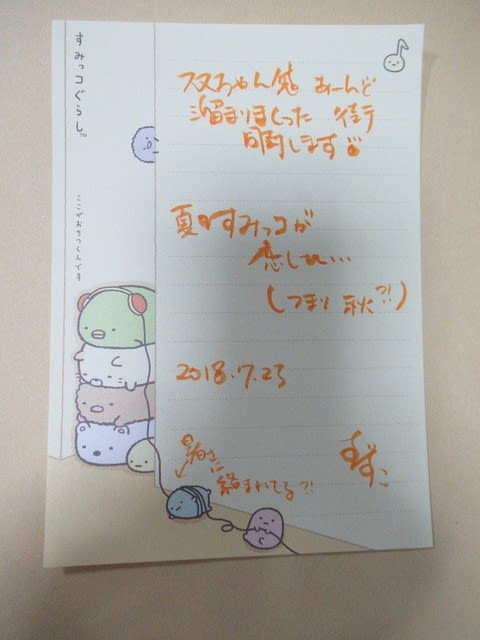 すみっコぐらし™
ここがおちつくんです
スヌちゃん宛 あーんど
溜まりまくった
します
夏はすみっコが
恋しい…
(つまり 秋?!)
2018.7.23
暑さに
絡まれてる?!
すずこ